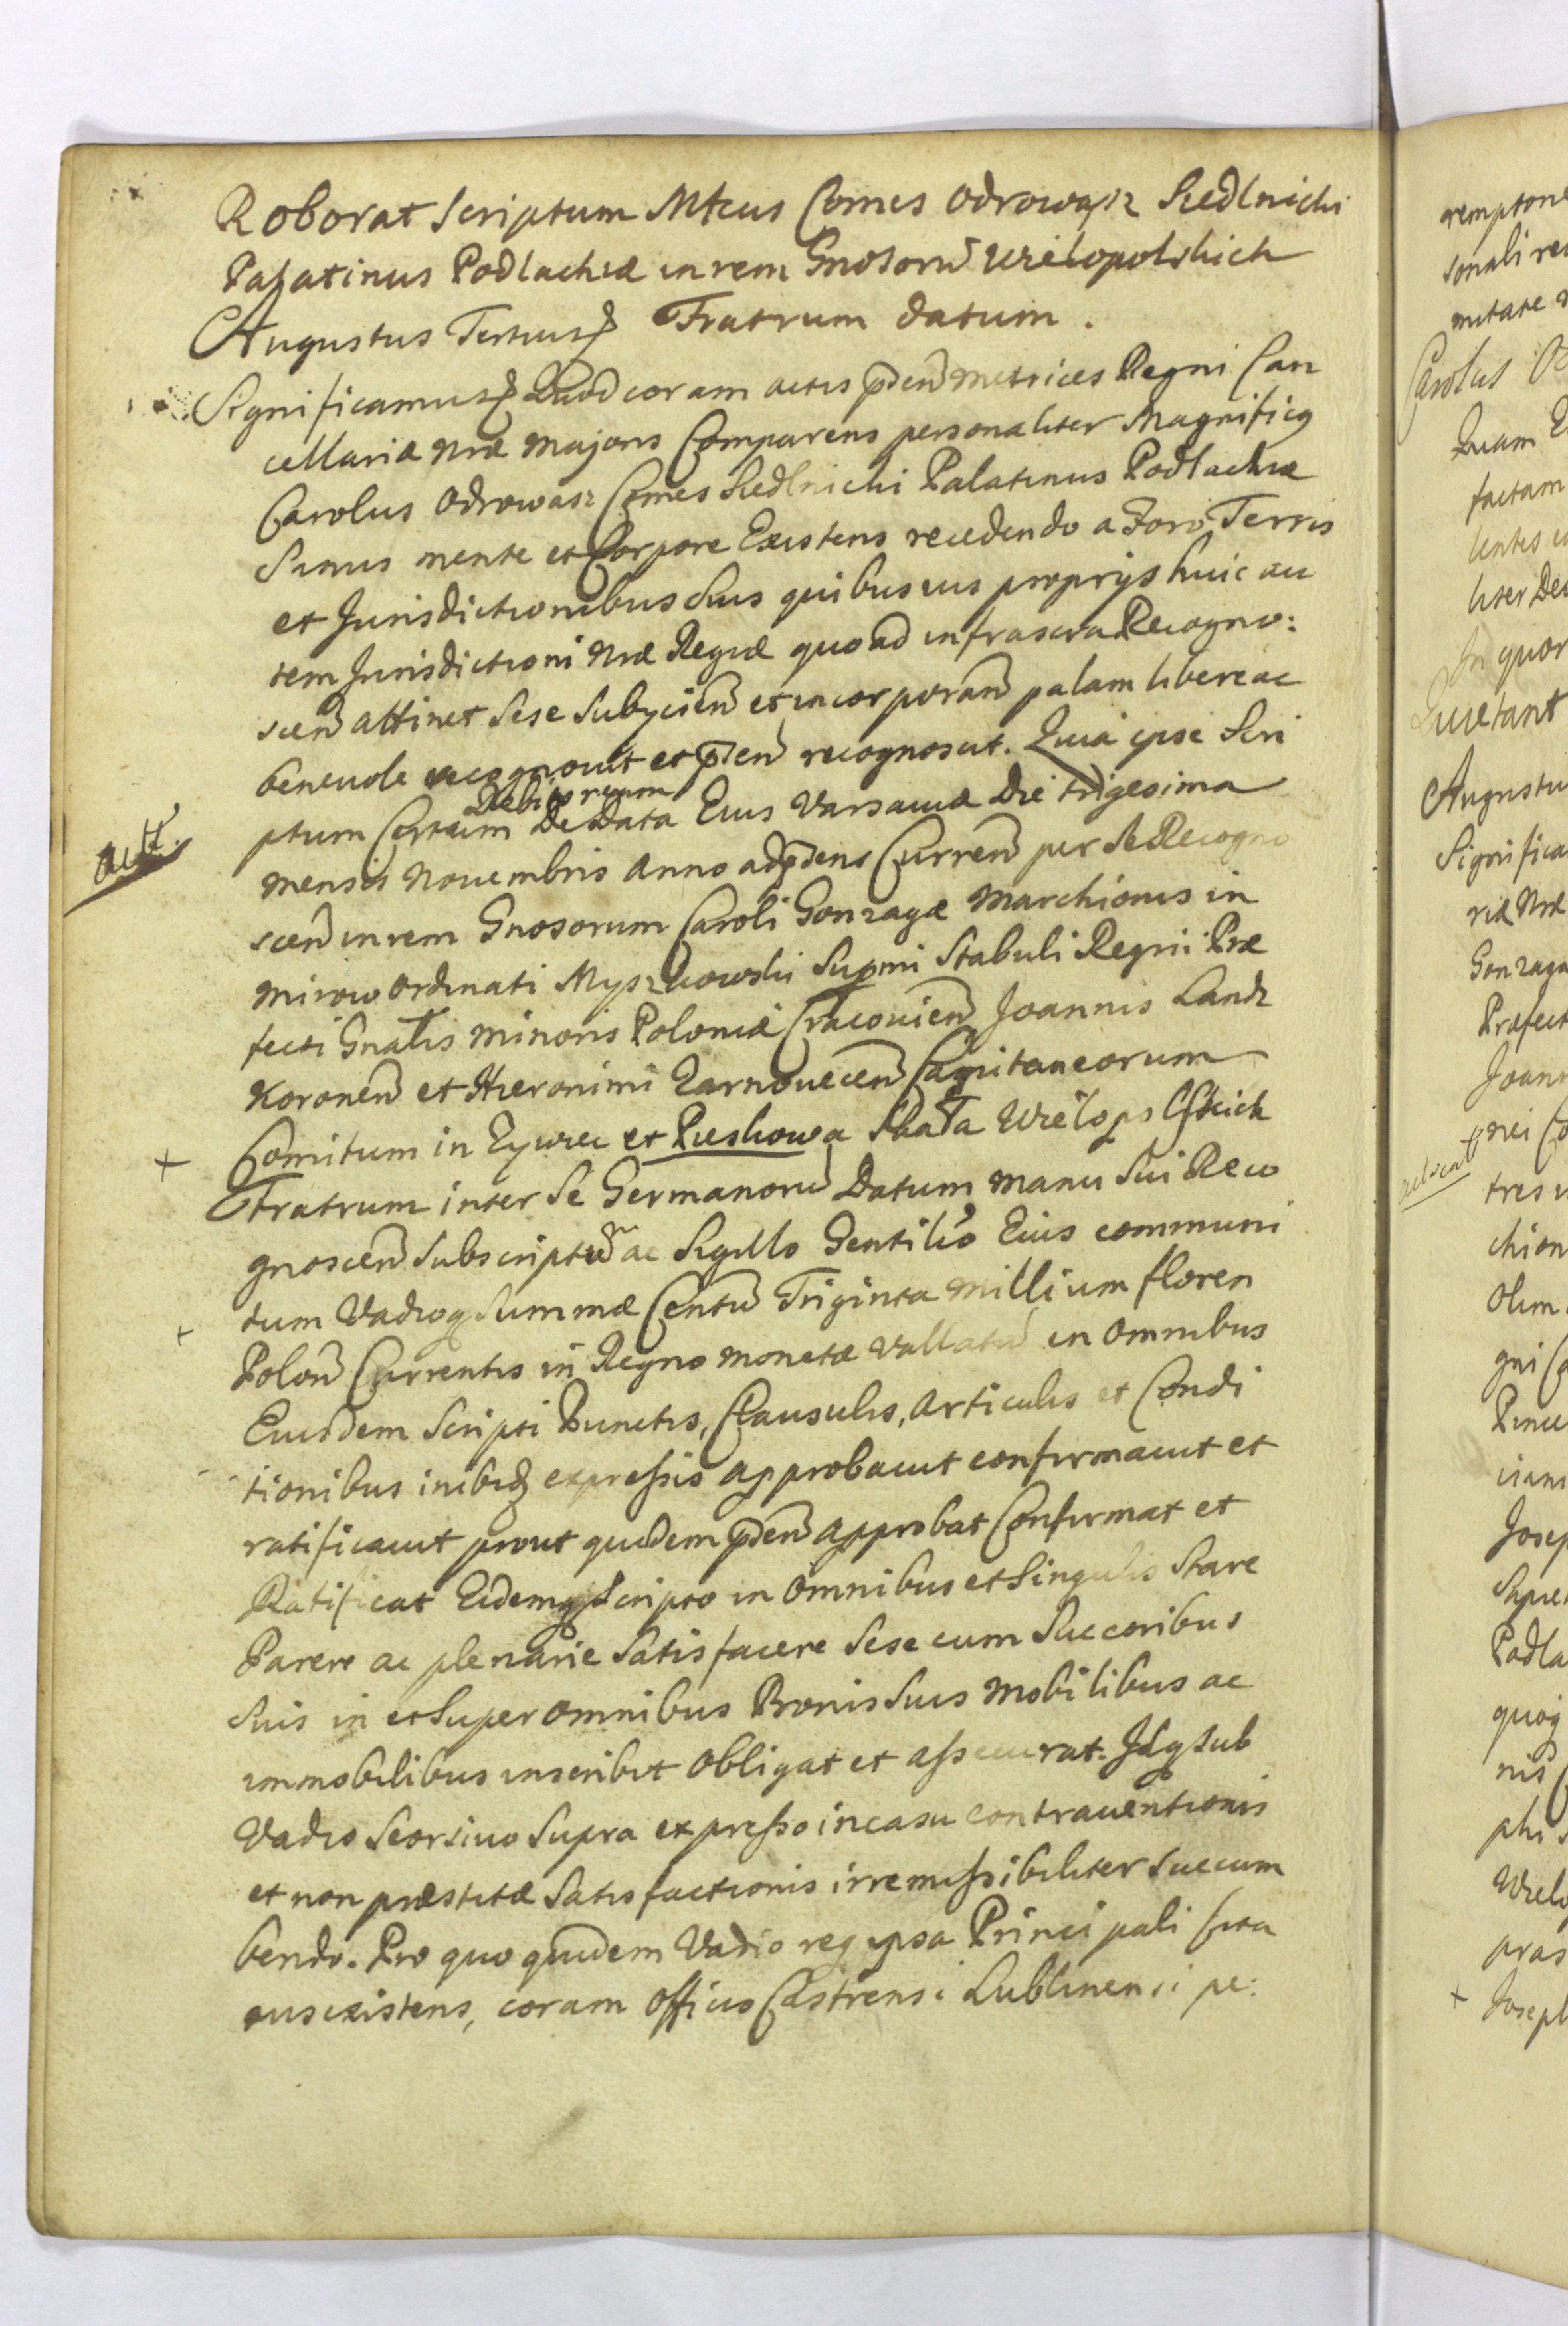 Roborat Scriptum Mfcus Comes Odrowąsz Siedlnicki
Palatinus Podlachiæ in rem Gnosorū Wielopolskich
Augustus Tertius Fratrum datum.
Significamus Quod coram actis p̄den̄ Metrices Regni Can
cellariæ Nræ Majoris Comparens personaliter Magnificq
Carolus Odrowasz Comes Siedlnicki Palatinus Podlachiæ
Sanus mente et Corpore Existens recedendo a Foro Terris
et Jurisdictionibus suis quibusvis proprijs huic au
tem Jurisdictioni Nræ Regiæ quoad infrascra Recogno:
scen̄ attinet Sese Subjicien̄ et incorporan̄ palam libere ac
benevole recognovit et p̄den̄ recognoscit. Quia ipse Scri
Debitoreum
ptum Certum De Data Eius Varsaviæ Die trigesima
act.
mensis Novembris Anno adp̄dens Curren̄ per Se Recogno
scen̄ in rem Gnosorum Caroli Gonzagæ Marchionis in
Mirow Ordinati Myszkowski Supmi Stabuli Regni Præ
fecti Gnalis Minoris Poloniæ Cracovien̄ Joannis Landz
Koronen̄ et Hieronimi Zarnovecen̄ Capitaneorum
+ Comitum in Zywiec et Pieskowa Skała Wielopolskich
Fratrum inter Se Germanorū Datum, manu Sui Reco
gnoscen̄ Subscriptū ac Sigillo Gentilio Eius communi
tum Vadioq Summæ Centū Triginta millium floren
Polon̄ Currentis in Regno monetæ vallatū in Omnibus
Eiusdem Scripti Punctis, Clausulis, Articulis et Condi
tionibus inibiq expressis approbavit confirmavit et
ratificavit prout quidem p̄den̄ approbat Confirmat et
Ratificat Eidemq Scripto in Omnibus et Singulis Stare
Parere ac plenarie Satisfacere Sese cum Succoribus
Suis in et Super omnibus Bonis Suis Mobilibus ac
immobilibus inscribit Obligat et assecurat. Idq sub
Vadio Seorsivo Supra expresso in casu contraventionis
et non præstitæ Satisfactionis irremissibiliter succum
bendo. Pro quo quidem Vadio req ipsa Principali
existens, coram Officio Castrensi Lublinensi pe:
sonali
mutare
Carolus
Quam
factam
lentis
liter
In quor
Quietant
Augustu
Significa
riæ Nræ
Gonzaga
Præfect
Joann
tres
chion
Olim
gni
Josep
Sapie
Podla
quoq
nis
Wielo
+ Joseph